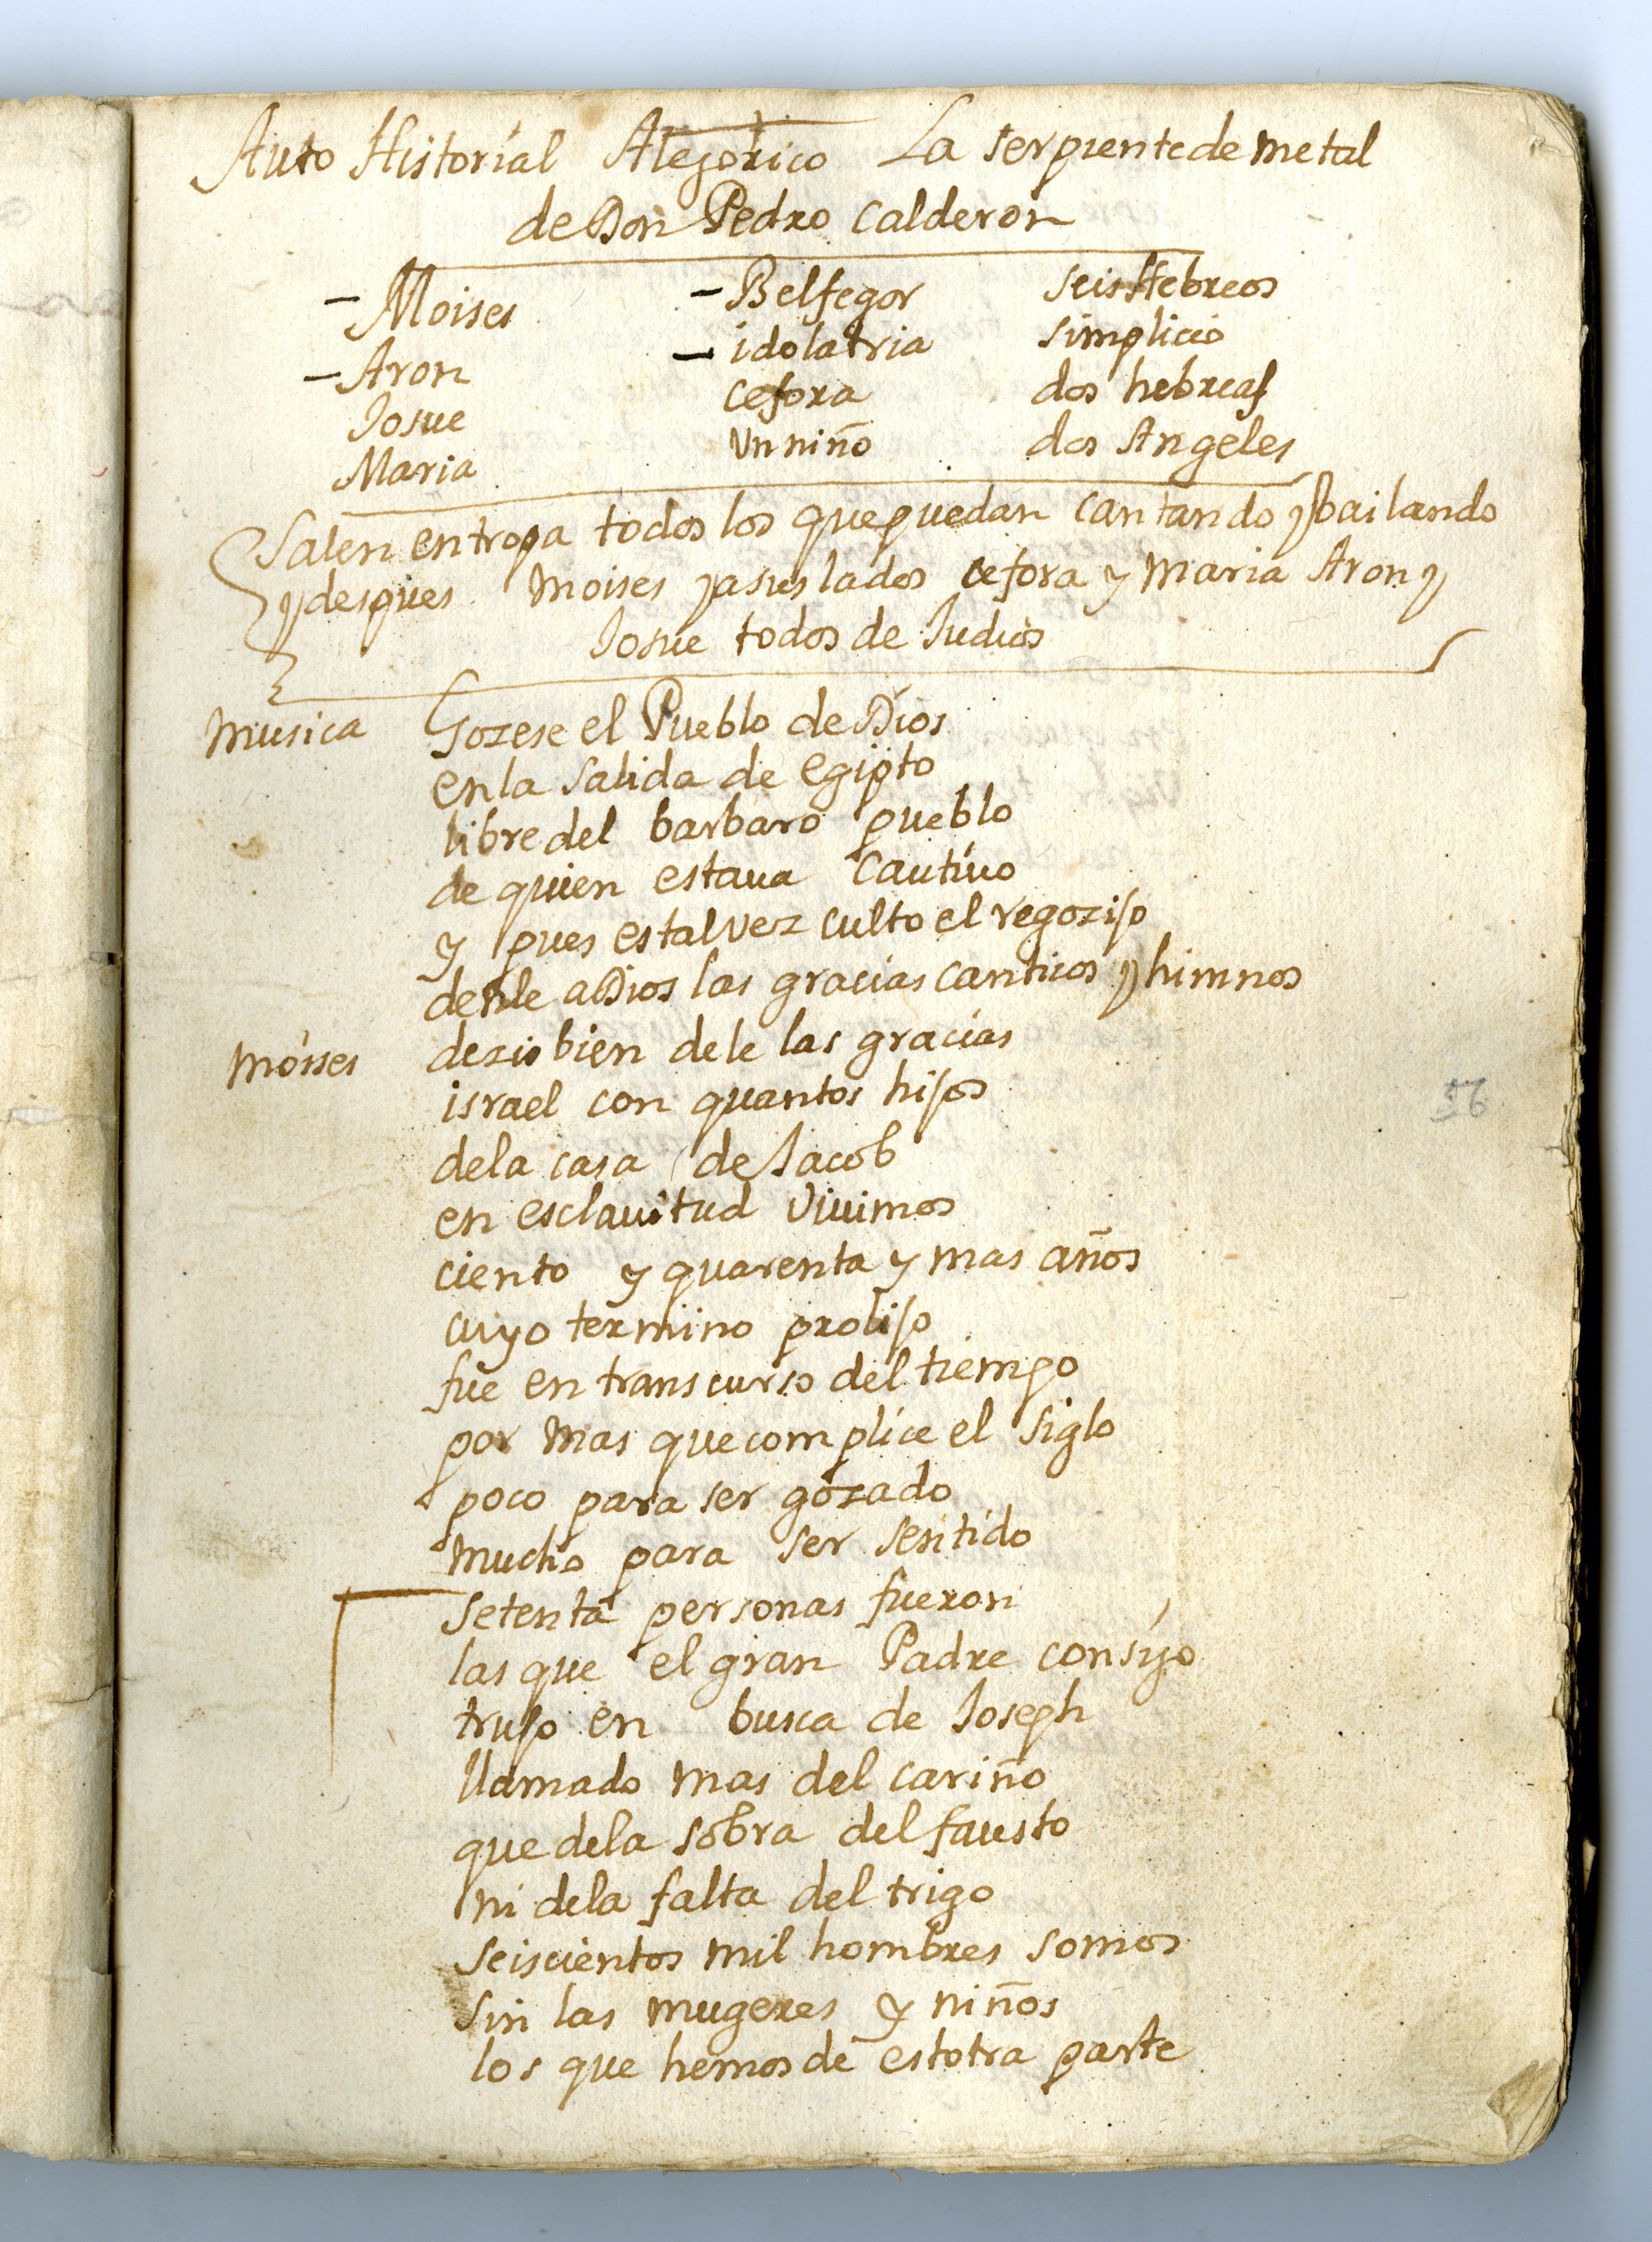 Auto Historial Alegorico La serpiente de metal
de Don Pedro Calderon
- Moises
- Aron
Josue
Maria
- Belfegor
- idolatria
Cefora
Un niño
seis Hebreos
simplicio
dos hebreas
dos Angeles
Salen en tropa todos los que puedan cantando y bailando
y despues Moises y a sus lados cefora y Maria Aron y
Josue todos de Judios
Musica Gozese el Pueblo de Dios
en la salida de egipto
libre del barbaro pueblo
de quien estaua cautiuo
y pues es tal vez culto el regozijo
denle a Dios las gracias canticos y himnos
Moises dezis bien dele las gracias
israel con quantos hijos
de la casa de Jacob
en esclauitud viuimos
ciento y quarenta y mas años
cuyo termino prolijo
fue en transcurso del tiempo
por mas que complice el siglo
poco para ser gozado
mucho para ser sentido
setenta personas fueron
las que el gran Padre consigo
trujo en busca de Joseph
llamado mas del cariño
que de la sobra del fausto
ni de la falta del trigo
seiscientos mil hombres somos
sin las mugeres y niños
los que hemos de estotra parte
56